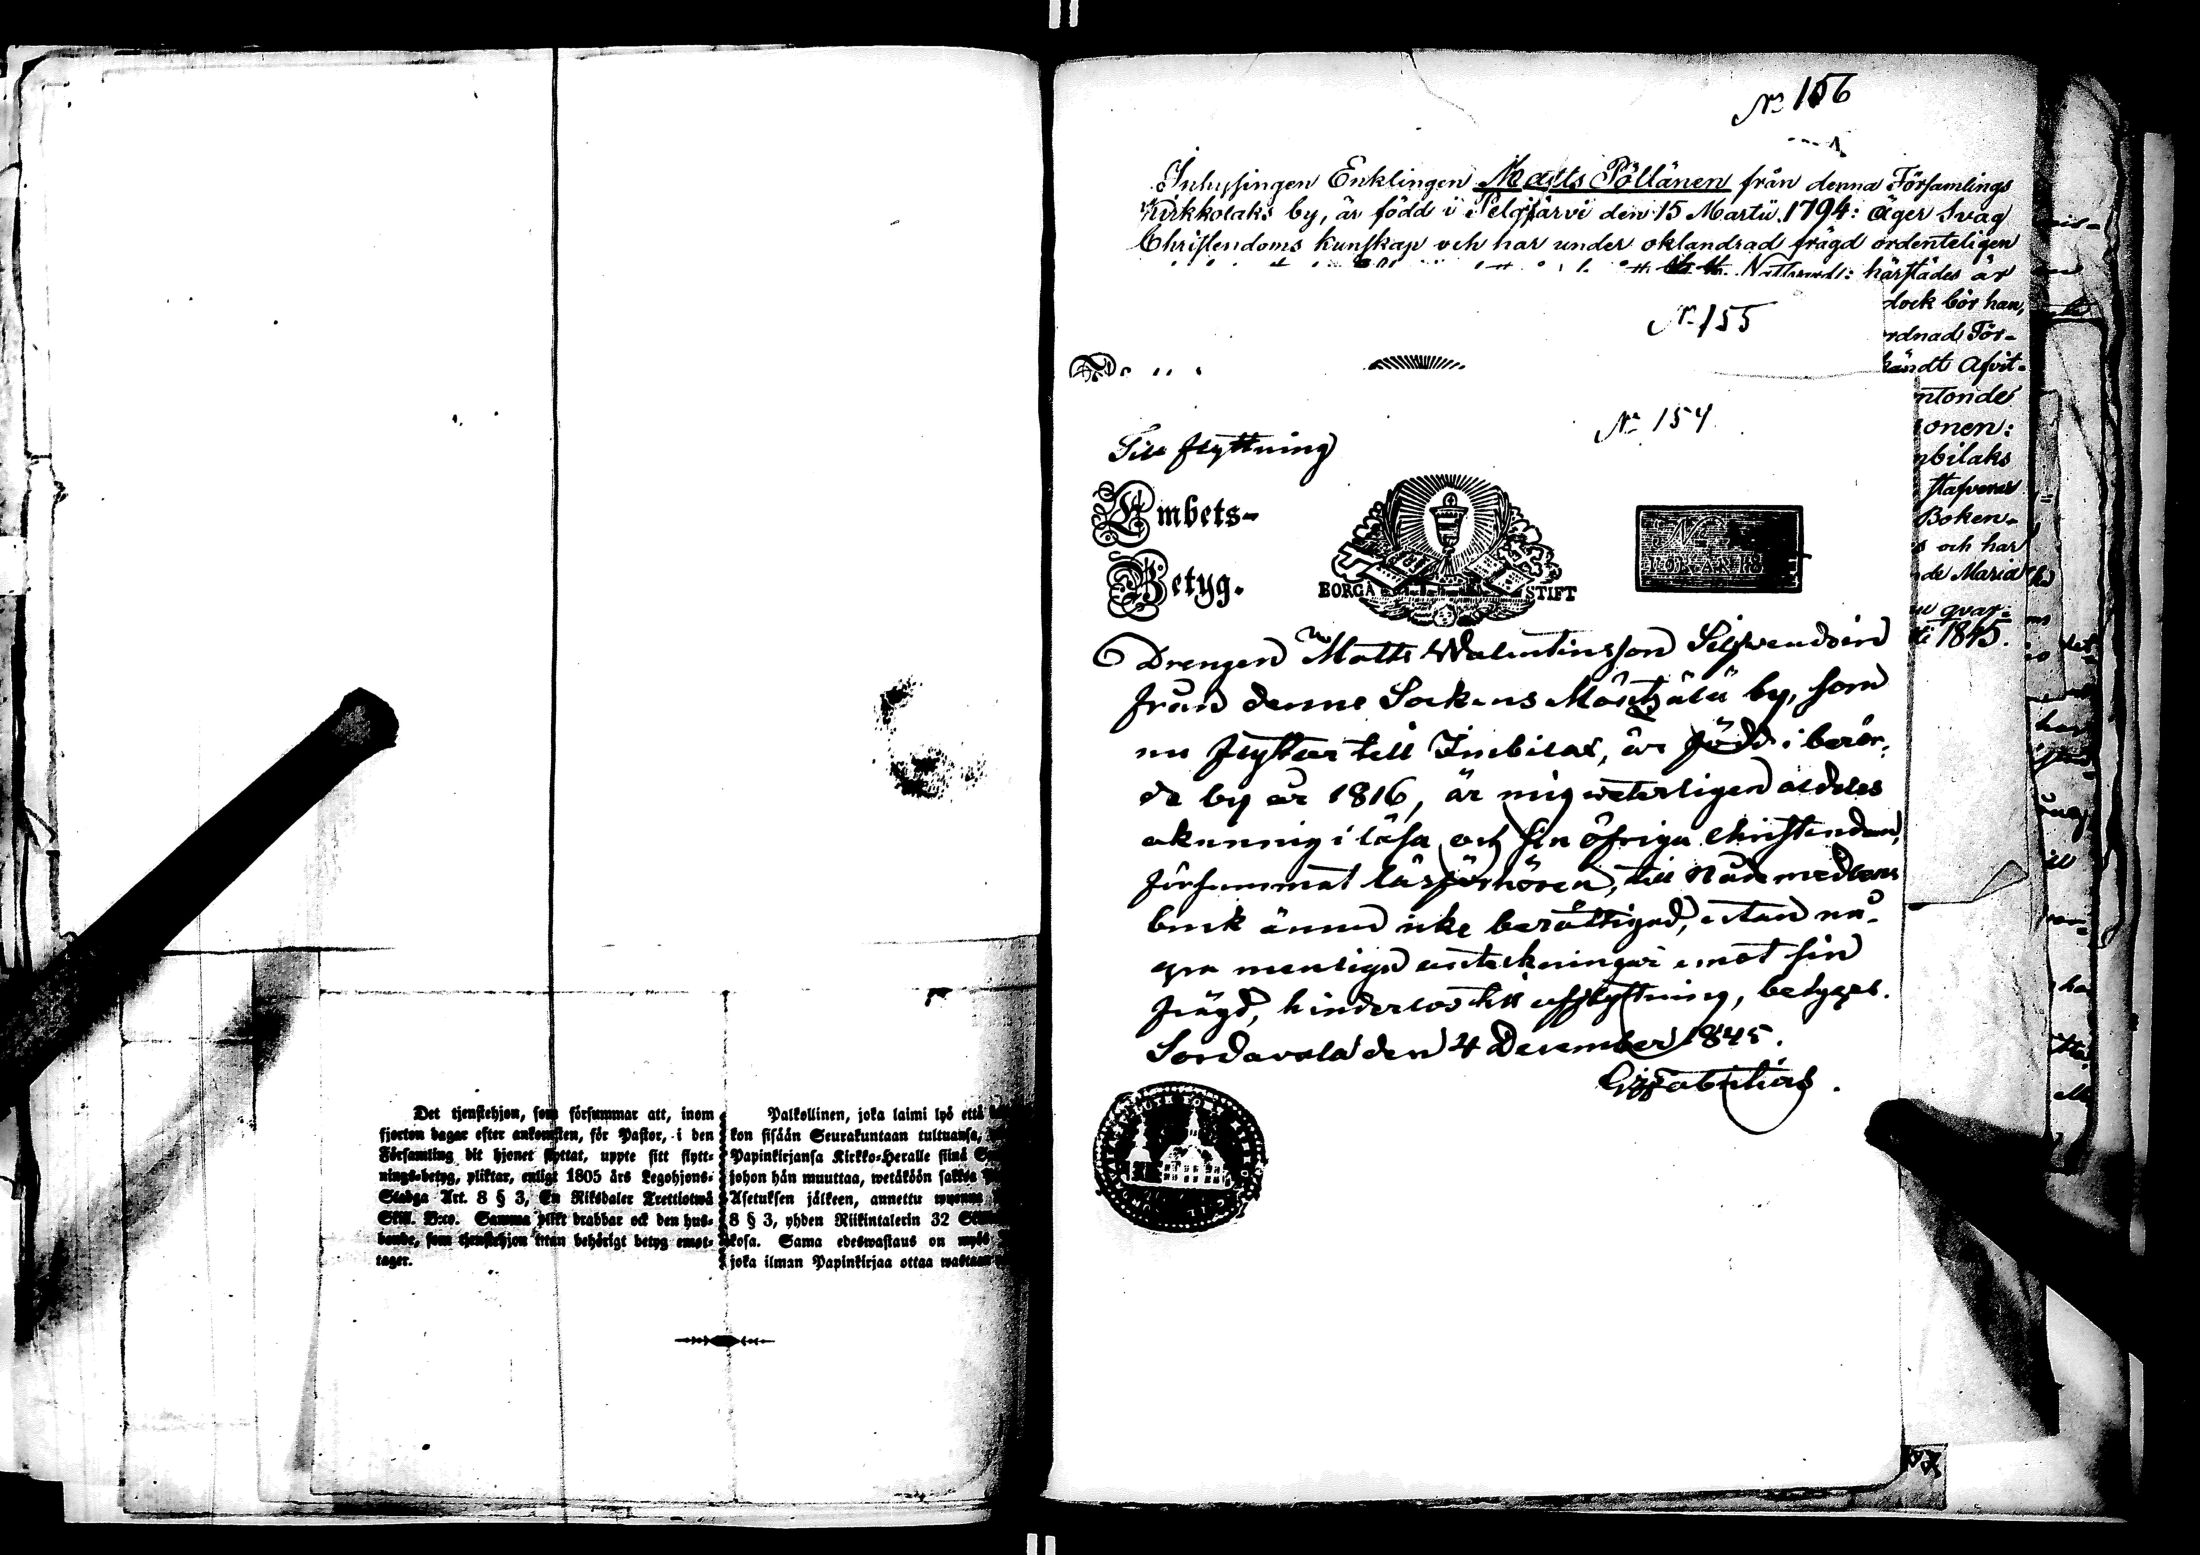 Det tjenstehjon, som försummar att, inom
fjorton dagar efter ankomsten, för Pastor, i den
Församling dit hjonet flyttat, uppte sitt flytt-
nings-betyg, pliktar, enligt 1805 års Legohjons-
Stadga Art. 8 § 3, En Riksdaler Trettiotwå
Skill. B:co. Samma plikt drabbar ock den hus-
bonde, som tjenstehjon utan behörigt betyg emot-
tager.
Palkollinen, joka laimi lyö että
kon sisään Seurakuntaan tultuansa,
Papinkirjansa Kirkko-Heralle siinä
johon hän muuttaa, wetäköön sakkoa
Asetuksen jälkeen, annettu wuonna
8 § 3, yhden Riikintalerin 32
kosa. Sama edeswastaus on myös
joka ilman Papinkirjaa ottaa wastaan
No 156
Inhysingen Enklingen Matts Pöllänen från denna Församlings
Kirkkolaks by, är född i Pelgjärvi den 15 Martii 1794: äger svag
Christendoms kunskap och har under oklandrad frägd ordenteligen
Nattvard: härstädes är
dock bör han,
rdnad För-
händt Afvit-
ntonde
onen:
mbilaks
stafverar
Boken-
s och har
de Maria
qvar-
1845.
No 155
No 154
Till flyttning
Embets-
Betyg.
BORGÅ STIFT
Drengen Matts Walentinsson Silfvendoin
från denne Sockens by, som
nu flyttar till Imbilax, är född i berör-
de by år 1816, är mig veterligen aldeles
okunnig i läsa och sin öfriga Christendom,
försummat läsförhören, till Nådemedlens
bruk ännu icke berättigad, utan nå-
gra menliga anteckningar emot sin
frägd, hinderlös till afflyttning, betygas.
Sordavala den 4 December 1845.